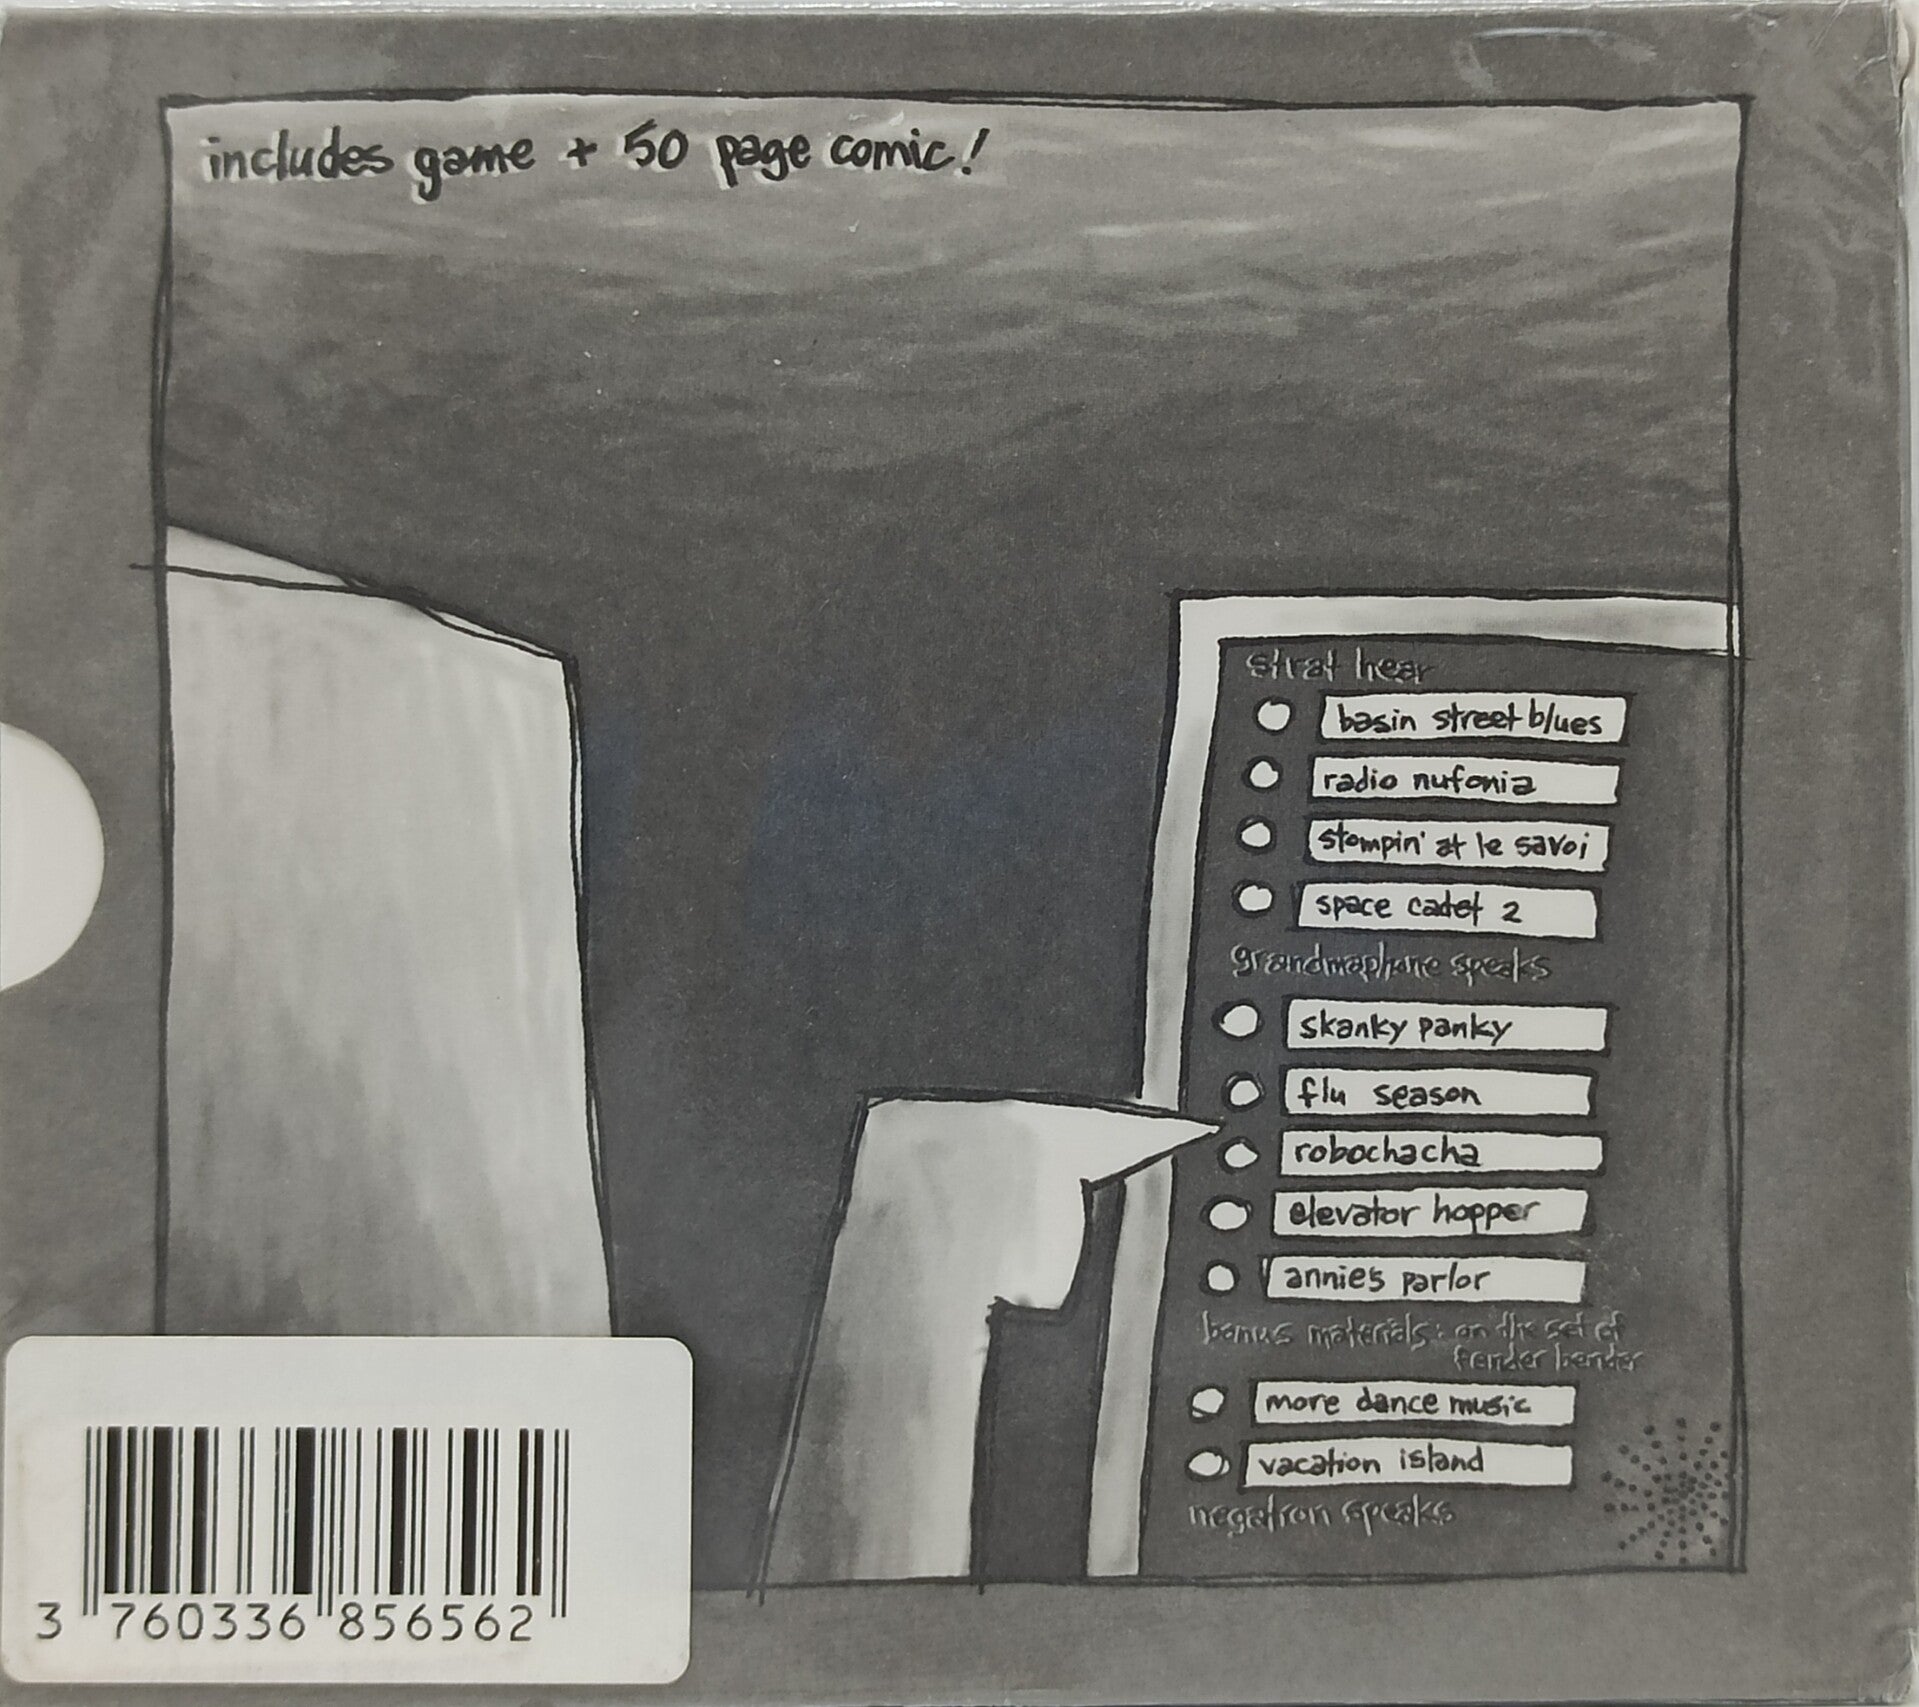 includes game + 50 page comic!
strat hear
basin street blues
radio nufonia
stompin' at le savoi
space cadet 2
grandmaphone speaks
skanky panky
flu season
robochacha
elevator hopper
annie's parlor
bonus materials: on the set of
fender bender
more dance music
vacation island
negatron speaks
3 760336 856562